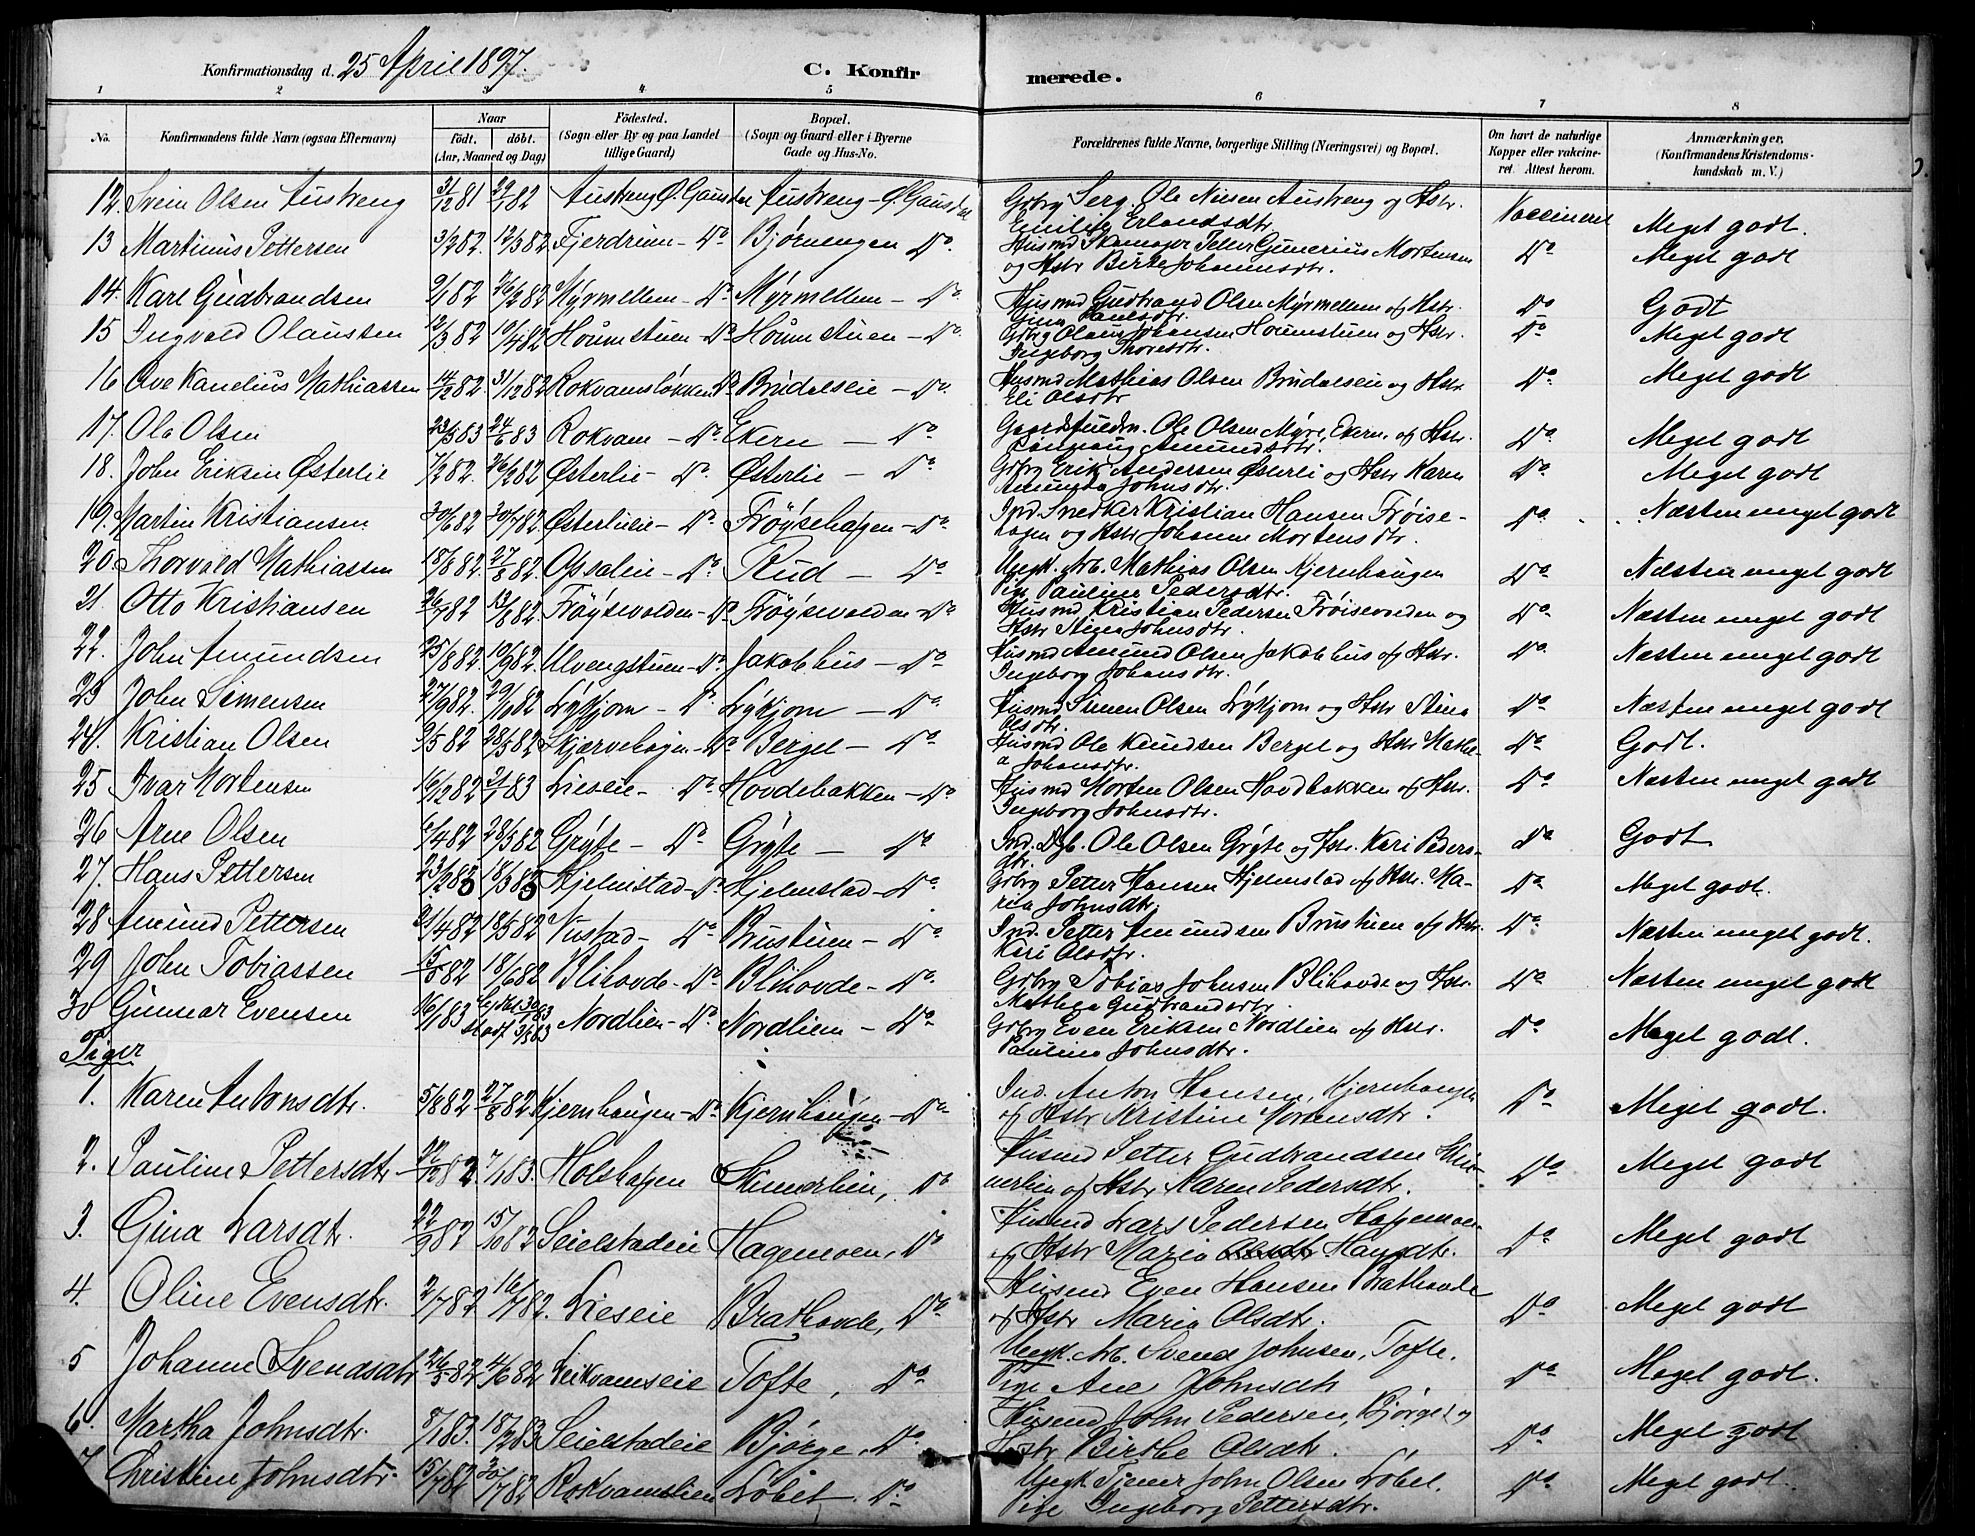 Konfirmationsdag d. 25 April 1897. C. Konfirmerede.
1 2 3 4 5 6 7 8
No. Konfirmandens fulde Navn (ogsaa Efternavn) Naar født. døbt. (Aar, Maaned og Dag) Fødested. (Sogn eller By og paa Landet tillige Gaard) Bopæl. (Sogn og Gaard eller i Byerne Gade og Hus-No. Forældrenes fulde Navne, borgerlige Stilling (Næringsvei) og Bopæl. Om havt de naturlige Kopper eller vakcineret. Attest herom. Anmærkninger, (Konfirmandens Kristendomskundskab m. V.)
12. Svein Olsen Austreng 31/12 81 29/1 82 Austreng Ø. Gausdal Austreng - Ø. Gausdal Gbrg Serg. Ole Nilsen Austreng og Hstr. Vaccineret Meget godt.
Emilie Erlandsdtr.
13 Martinus Pettersen 3/2 82. 12/3 82 Fjerdrum - Do Bjørnengen Do. Husmd Skomager Petter Gunerius Mortensen Do Meget godt
og Hstr Birte Johannesdtr.
14. Karl Gudbrandsen 9/1 82 26/2 82 Myrmellem - Do Myrmellem - Do. Husmd Gudbrand Olsen Myrmellem og Hstr. Do Godt
Gina Paulsdtr.
15 Ingvald Olaussen 12/3 82 10/4 82 Houmstuen - Do Houmstuen - Do. Gbrg Olaus Johansen Houmstuen og Hstr. Do Meget godt
Ingeborg Thoresdtr.
16 Ove Kanelius Mathiassen 14/12 82. 31/12 82 Rokvamsløkken Do Brudalseie - Do. Husmd Mathias Olsen Brudalseie og Hstr Do Meget godt
Eli Olsdtr
17. Ole Olsen 23/5 83 24/6 83 Rokvam - Do Ekern - Do Ole Olsen Myre, Ekern. og Hstr. Do. Meget godt
Amundsdtr.
18. John Eriksen Østerlie 7/2 82. 26/2 82 Østerlie - Do. Østerlie - Do Gbrg Erik Andersen Østerli og Hstr Karen Do. Meget godt
Johnsdtr.
19. Martin Kristiansen 30/6 82 30/7 82 Østerlieie - Do Frøysehagen - Do. Ind. Snedker Kristian Hansen Frøise- Do. Næsten meget godt
hagen og Hstr Johanne Mortensdtr.
20. Thorvald Mathiassen 18/8 82. 27/8 82. Opsalien - Do. Rud - Do Ungk. Arb. Mathias Olsen Kjernhaugen Do Næsten meget godt
Pige Pauline Pedersdtr.
21. Otto Kristiansen 26/7 82 13/8 82. Frøysevolden - Do Frøysevolden - Do Husmd Kristian Pedersen Frøisevolden og Do Næsten meget godt
Hstr Stina Johnsdtr.
22. John Amundsen 25/8 82. 10/9 82. Ulvengstuen - Do Jakobhus - Do. Husmd Amund Olsen Jakobhus og Hstr. Do. Næsten meget godt
Ingeborg Johansdtr.
23 John Simensen 27/9 82. 29/10 82 Lykjom - Do. Lykjom - Do. Husmd Simen Olsen Lykjom og Hstr Stina Do Næsten meget godt
Olsdtr.
24. Kristian Olsen 9/5 82 28/5 82 Skjervehagen - Do Berget - Do Husmd Ole Knudsen Berget og Hstr Mathe- Do Godt.
a Johansdtr.
25 Ivar Mortensen 16/12 82 21/1 83 Lieseie - Do. Hovdebakken - Do Husmd Morten Olsen Hovdbakken og Hstr. Do Næsten meget godt
Ingeborg Johnsdtr.
26 Arne Olsen 6/4 82 28/5 82 Grøte - Do Grøte - Do Ind. Dgl. Ole Olsen Grøte og Hstr. Kari Peders- Do Godt
dtr.
27. Hans Pettersen 23/2 83 18/3 83 Hjelmstad - Do Hjelmstad - Do. Gbrg Petter Hansen Hjelmstad og Hstr. Ma- Do. Meget godt.
ria Johnsdtr.
28 Amund Pettersen 21/4 82 18/5 82 Nustad - Do Brustuen - Do. Ind. Petter Amundsen Brustuen og Hstr Do. Næsten meget godt.
Kari Olsdtr.
29 John Tobiassen 13/5 82 18/6 82 Blihovde - Do. Blihovde - Do. Gbrg Tobias Johnsen Blihovde og Hstr. Do Næsten meget godt
Mathea Gudbrandsdtr.
30 Gunnar Evensen 16/1 83 Nordlien - Do. Nordlien - Do Gbrg Even Eriksen Nordlien og Hstr. Do Meget godt.
Pauline Johnsdtr.
Piger
1. Karen Antonsdtr. 5/8 82 27/8 82 Kjernhaugen - Do Kjernhaugen - Do Ind. Anton Hansen, Kjernhaugen Do Meget godt.
og Hstr Kristine dtr.
2. Pauline Pettersdtr 22/10 82. 7/1 83. Holshagen Skinnerlien, Do Husmd Petter Gudbrandsen Skin- Do Meget godt
nerlien og Hstr Karen Pedersdtr.
3. Gina Larsdtr. 22/9 82 15/10 82 Seielstadeie Hagemoen, Do Husmd Lars Pedersen Hagemoen Do Meget godt
og Hstr Maria Olsdtr Hansdtr.
4. Oline Evensdtr. 2/7 82 16/7 82. Lieseie Brathovde, Do Husmd Even Hansen Brathovde Do Meget godt
og Hstr Maria Olsdtr.
5 Johanne Svendsdtr 26/5 82 4/6 82 Leikvamseie Tofte, Do Ungk. Arb. Svend Johnsen, Tofte. Do Meget godt.
Pige Ane Johnsdtr
6. Martha Johnsdtr. 8/1 83. 18/2 83 Seielstadeie Bjørge, Do. Husmd John Pedersen, Bjørge og Do Meget godt
Hstr Birthe Olsdtr.
7 Christine Johnsdtr. 15/7 82 30/7 82 Rokvamslien Løbet Do Ungk Tjener John Olsen Løbet. Do Meget godt.
Pige Ingeborg Pettersdtr.